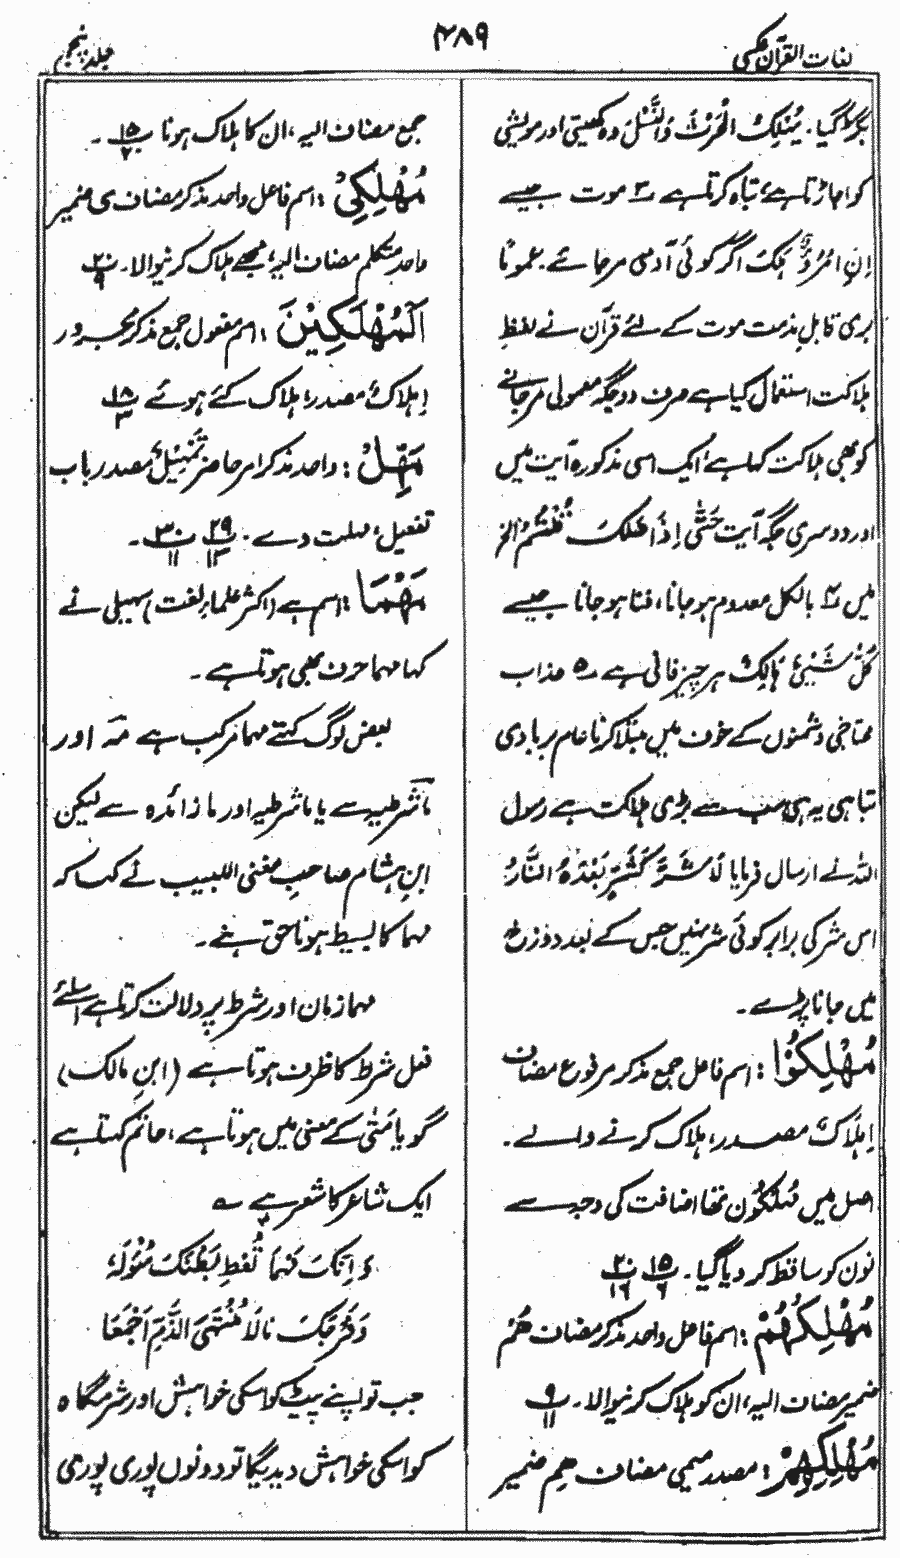 لغات القرآن عکسی
۴۸۹
جلد پنجم
بگڑ گیا۔ یُهْلِكَ الْحَرْثَ وَالنَّسْلَ وہ کھیتی اور مویشی
کو اجاڑتا ہے، تباہ کرتا ہے ۳؎ موت جیسے
اِنِ امْرُؤٌا هَلَكَ اگر کوئی آدمی مرجائے۔ عموماً
بری قابلِ مذمت موت کے لئے قرآن نے لفظِ
ہلاکت استعمال کیا ہے صرف دو جگہ معمولی مرجانے
کو بھی ہلاکت کہا ہے، ایک اسی مذکورہ آیت میں
اور دوسری جگہ آیت حَتّٰى اِذَا هَلَكَ قُلْتُمْ الخ
میں ۴؎ بالکل معدوم ہوجانا، فنا ہو جانا جیسے
كُلُّ شَيْئٍ هَالِكٌ ہر چیز فانی ہے ۵؎ عذاب
محتاجی دشمنوں کے خوف میں مبتلا کرنا عام بربادی
تباہی یہ ہی سب سے بڑی ہلاکت ہے رسول
اللہ نے ارسال فرمایا لَا شَرَّ كَشَرٍّ بَعْدَهُ النَّارُ
اس شر کی برابر کوئی شر نہیں جس کے بعد دوزخ
میں جانا پڑے۔
مُهْلِكُوْا : اسم فاعل جمع مذکر مرفوع مضاف
اِهْلَاكٌ مصدر، ہلاک کرنے والے۔
اصل میں مُهْلِكُوْن تھا اضافت کی وجہ سے
نون کو ساقط کر دیا گیا۔ ۱۵/۶ ۲۰/۱۶
مُهْلِكُهُمْ : اسم فاعل واحد مذکر مضاف هُمْ
ضمیر مضاف الیہ، ان کو ہلاک کرنیوالا۔ ۹/۱۱
مُهْلِكِهِمْ : مصدر میمی مضاف هِم ضمیر
جمع مضاف الیہ، ان کا ہلاک ہونا ۱۵/۲۰۔
مُهْلِكِيْ : اسم فاعل واحد مذکر مضاف ی ضمیر
واحد متکلم مضاف الیہ، مجھے ہلاک کرنیوالا۔ ۲۰/۹
اَلْمُهْلَكِيْنَ : اسم مفعول جمع مذکر مجرور
اِهْلَاكٌ مصدر، ہلاک کئے ہوئے ۱۸/۳
مَهِّلْ : واحد مذکر امر حاضر تَمْهِيْلٌ مصدر رباب
تفعیل، مہلت دے۔ ۲۹/۱۳ ۳۰/۱۱۔
مَهْمَا : اسم ہے (اکثر علماء لغت) سہیلی نے
کہا مہما حرف بھی ہوتا ہے۔
بعض لوگ کہتے مہما مرکب ہے مَہ اور
مَا شرطیہ سے یا ما شرطیہ اور ما زائدہ سے لیکن
ابنِ ہشام صاحبِ مغنی اللبیب نے کہا کہ
مہما کا بسیط ہونا حق ہے۔
مہما زمان اور شرط پر دلالت کرتا ہے اسلئے
فعل شرط کا ظرف ہوتا ہے (ابنِ مالک)
گویا مَتٰى کے معنی میں ہوتا ہے، حاتم کہتا ہے
ایک شاعر کا شعر ہے ؎
وَ اِنَّكَ مَهْمَا تُعْطِ بَطْنَكَ سُؤْلَهُ
وَفَرْجَكَ نَالَا مُنْتَهَى الذَّمِّ اَجْمَعَا
جب تو اپنے پیٹ کو اسکی خواہش اور شرمگاہ
کو اسکی خواہش دیدیگا تو دونوں پوری پوری